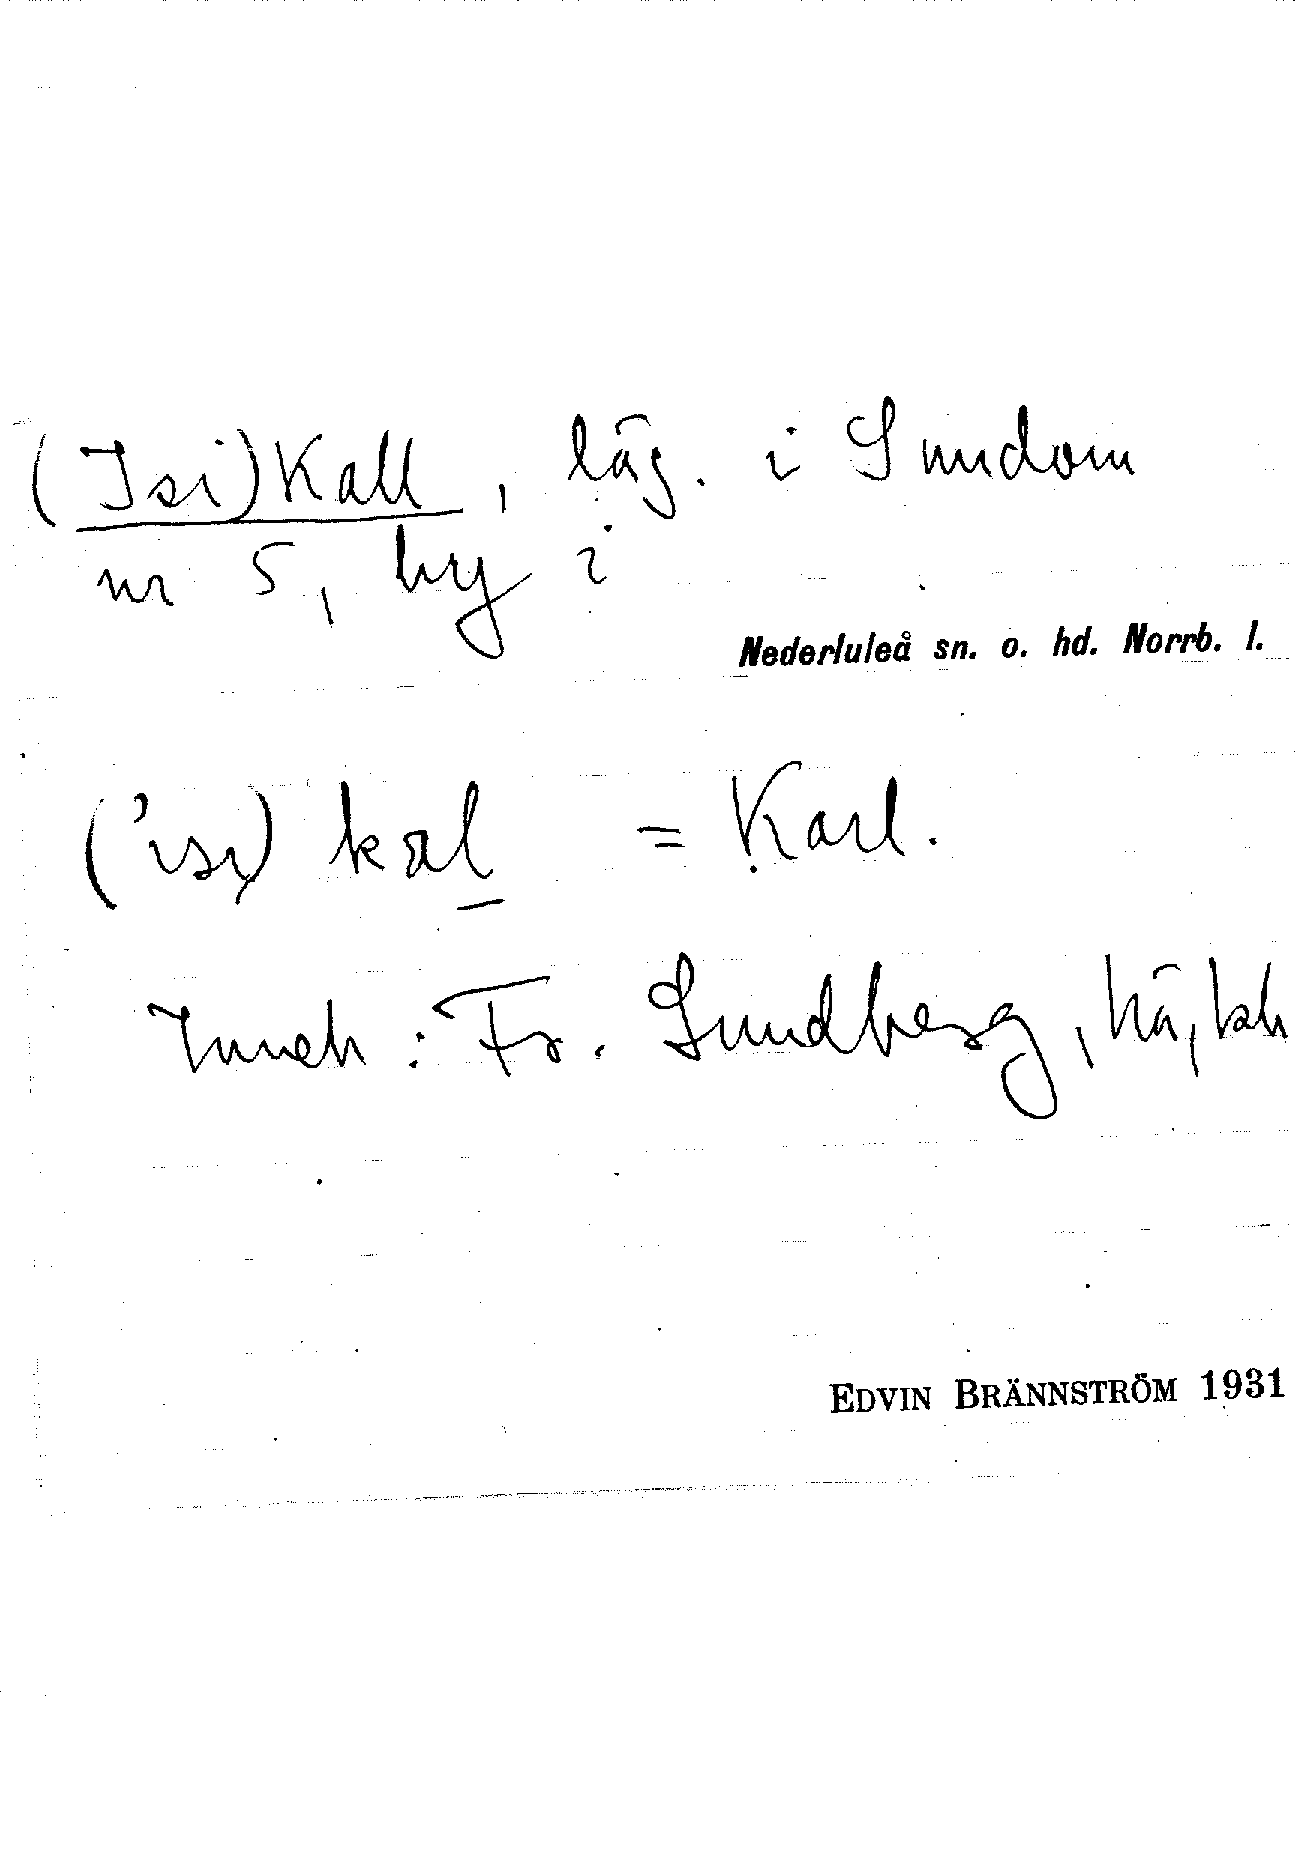 (Isi)Kall, läg. i Sundom
nr 5, by i
Nederluleå sn. o. hd. Norrb. l.
('isi) kal = Karl.
Inneh: Fr. Sundberg,
EDVIN BRÄNNSTRÖM 1931